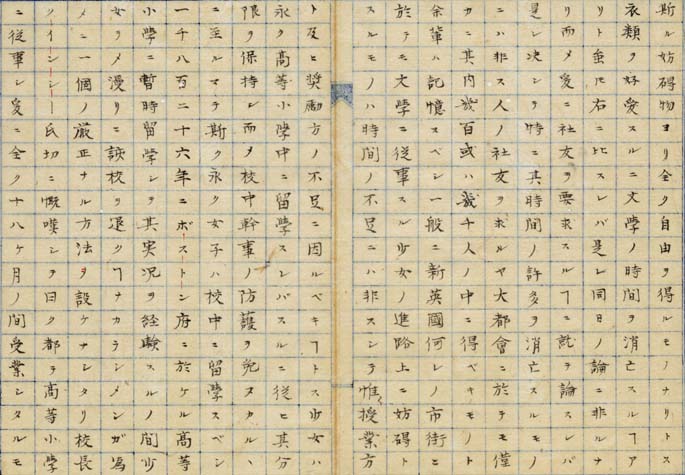 斯ル妨碍物ヨリ全ク自由ヲ得ルモノナリトス
衣類ヲ好愛スルニ文學ノ時間ヲ消亡スルヿア
リト虽𪜈右ニ比スレバ是レ同日ノ論ニ非ルナ
リ而〆爰ニ社友ヲ要求スルヿニ就テ論スレバ
是レ决シテ特ニ其時間ノ許多ヲ消亡スルモノ
ニハ非ス人ノ社友ヲ求ルヤ大都會ニ於テモ僅
カニ其内幾百或ハ幾千人ノ中ニ得ベキモノト
余輩ハ記憶スベシ一般ニ新英國何レノ市街ニ
於テモ文學ニ從事スル少女ノ進路上ニ妨碍ト
スルモノハ時間ノ不足ニハ非スシテ惟授業方
ト及ヒ奨勵方ノ不足ニ因ルベキヿトス少女ハ
永ク高等小學中ニ留學スレバスルニ從ヒ其分
限ヲ保持シ而〆校中幹事ノ防護ヲ免ヌカルヽ
ニ至ルマテ斯ク永ク女子ハ校中ニ留學スベシ
一千八百二十六年ニボストン府ニ於ケル高等
小學ニ暫時留學シテ其実况ヲ経驗スルノ間少
女ヲ〆漫リニ該校ヲ退クヿナカラシメンガ為
メニ一個ノ嚴正ナル方法ヲ設ケナシタリ校長
クインシー氏切ニ慨嘆シテ曰ク都テ高等小學
ニ從事シ爰ニ全ク十八ケ月ノ間受業シタルモ